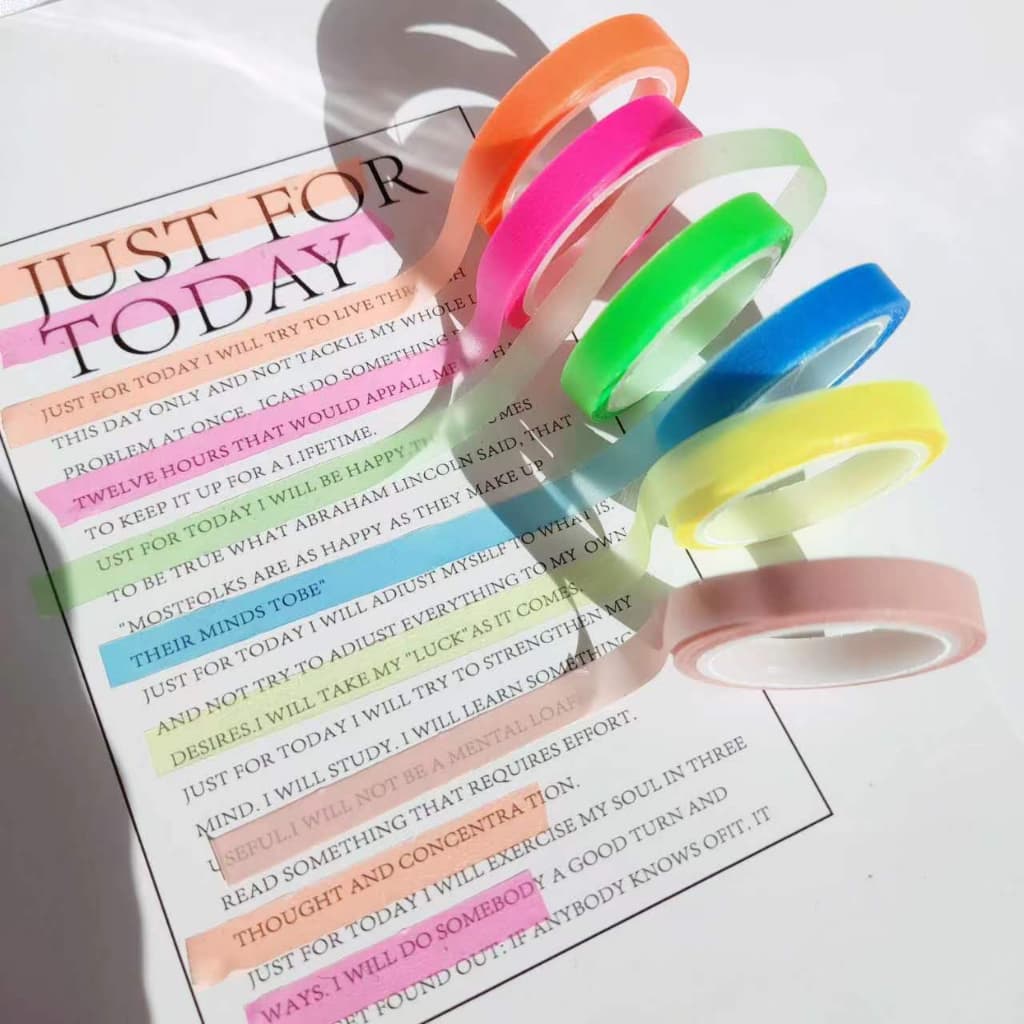 JUST FOR
TODAY
JUST FOR TODAY I WILL TRY TO LIVE
THIS DAY ONLY AND NOT TACKLE MY WHOLE
PROBLEM AT ONCE. ICAN DO SOMETHING
TWELVE HOURS THAT WOULD APPALL ME
TO KEEP IT UP FOR A LIFETIME.
UST FOR TODAY I WILL BE HAPPY.
TO BE TRUE WHAT ABRAHAM LINCOLN SAID, THAT
"MOSTFOLKS ARE AS HAPPY AS THEY MAKE UP
THEIR MINDS TOBE"
JUST FOR TODAY I WILL ADJUST MYSELF TO WHAT IS.
AND NOT TRY TO ADJUST EVERYTHING TO MY OWN
DESIRES.I WILL TAKE MY "LUCK"AS IT COMES.
JUST FOR TODAY I WILL TRY TO STRENGTHEN MY
MIND. I WILL STUDY. I WILL LEARN SOMETHING
USEFUL.I WILL NOT BE A MENTAL LOAF
READ SOMETHING THAT REQUIRES EFFORT.
THOUGHT AND CONCENTRATION.
JUST FOR TODAY I WILL EXERCISE MY SOUL IN THREE
WAYS. I WILL DO SOMEBODY A GOOD TURN AND
GET FOUND OUT: IF ANYBODY KNOWS OFIT, IT